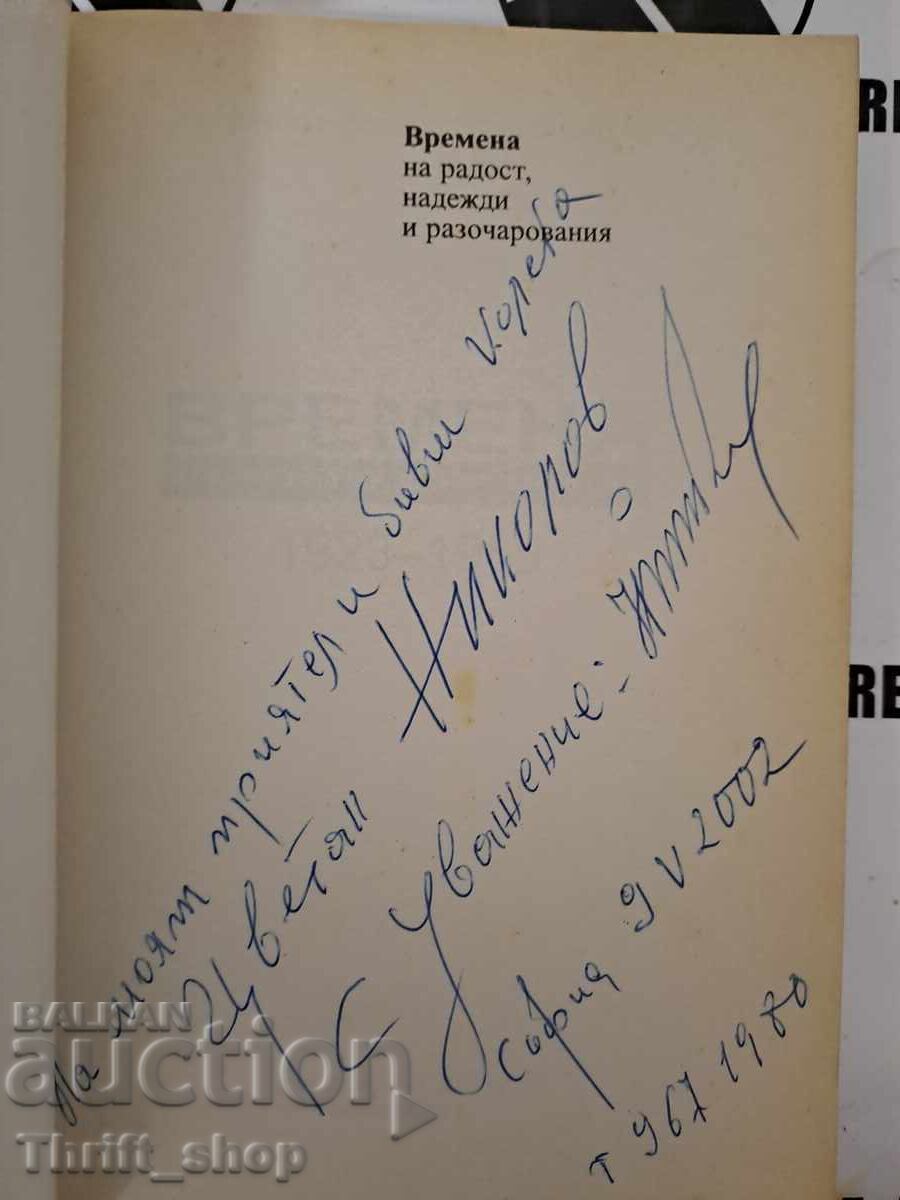 Времена
на радост,
надежди
и разочарования
На моят приятел и бивш колега
Цветан Никопов
С уважение:
София 9 V 2002
т 967 19 80
BALKAN
auction
Thrift_shop
RE
RE